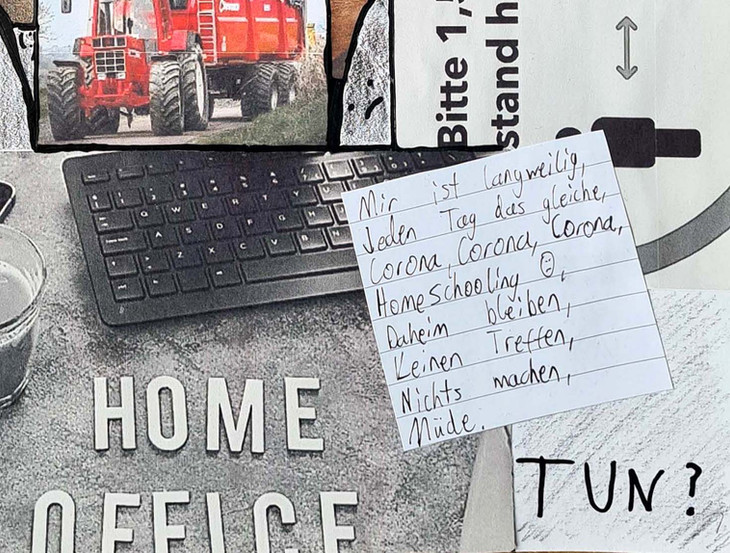 Bitte 1,5
stand h
Mir ist langweilig,
Jeden Tag das gleiche,
Corona, Corona, Corona,
Homeschooling ☹,
Daheim bleiben,
Keinen Treffen,
Nichts machen,
Müde.
HOME
OFFICE
TUN?